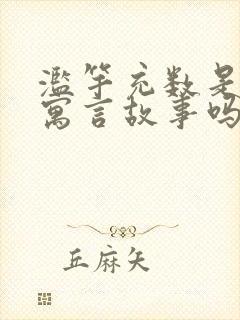 滥竽充数是
寓言故事吗
丘麻矢